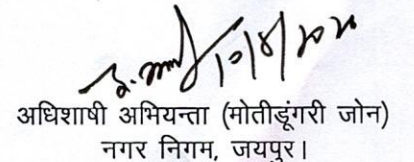 अधिशाषी अभियन्ता (मोतीडूंगरी जोन)
नगर निगम, जयपुर।